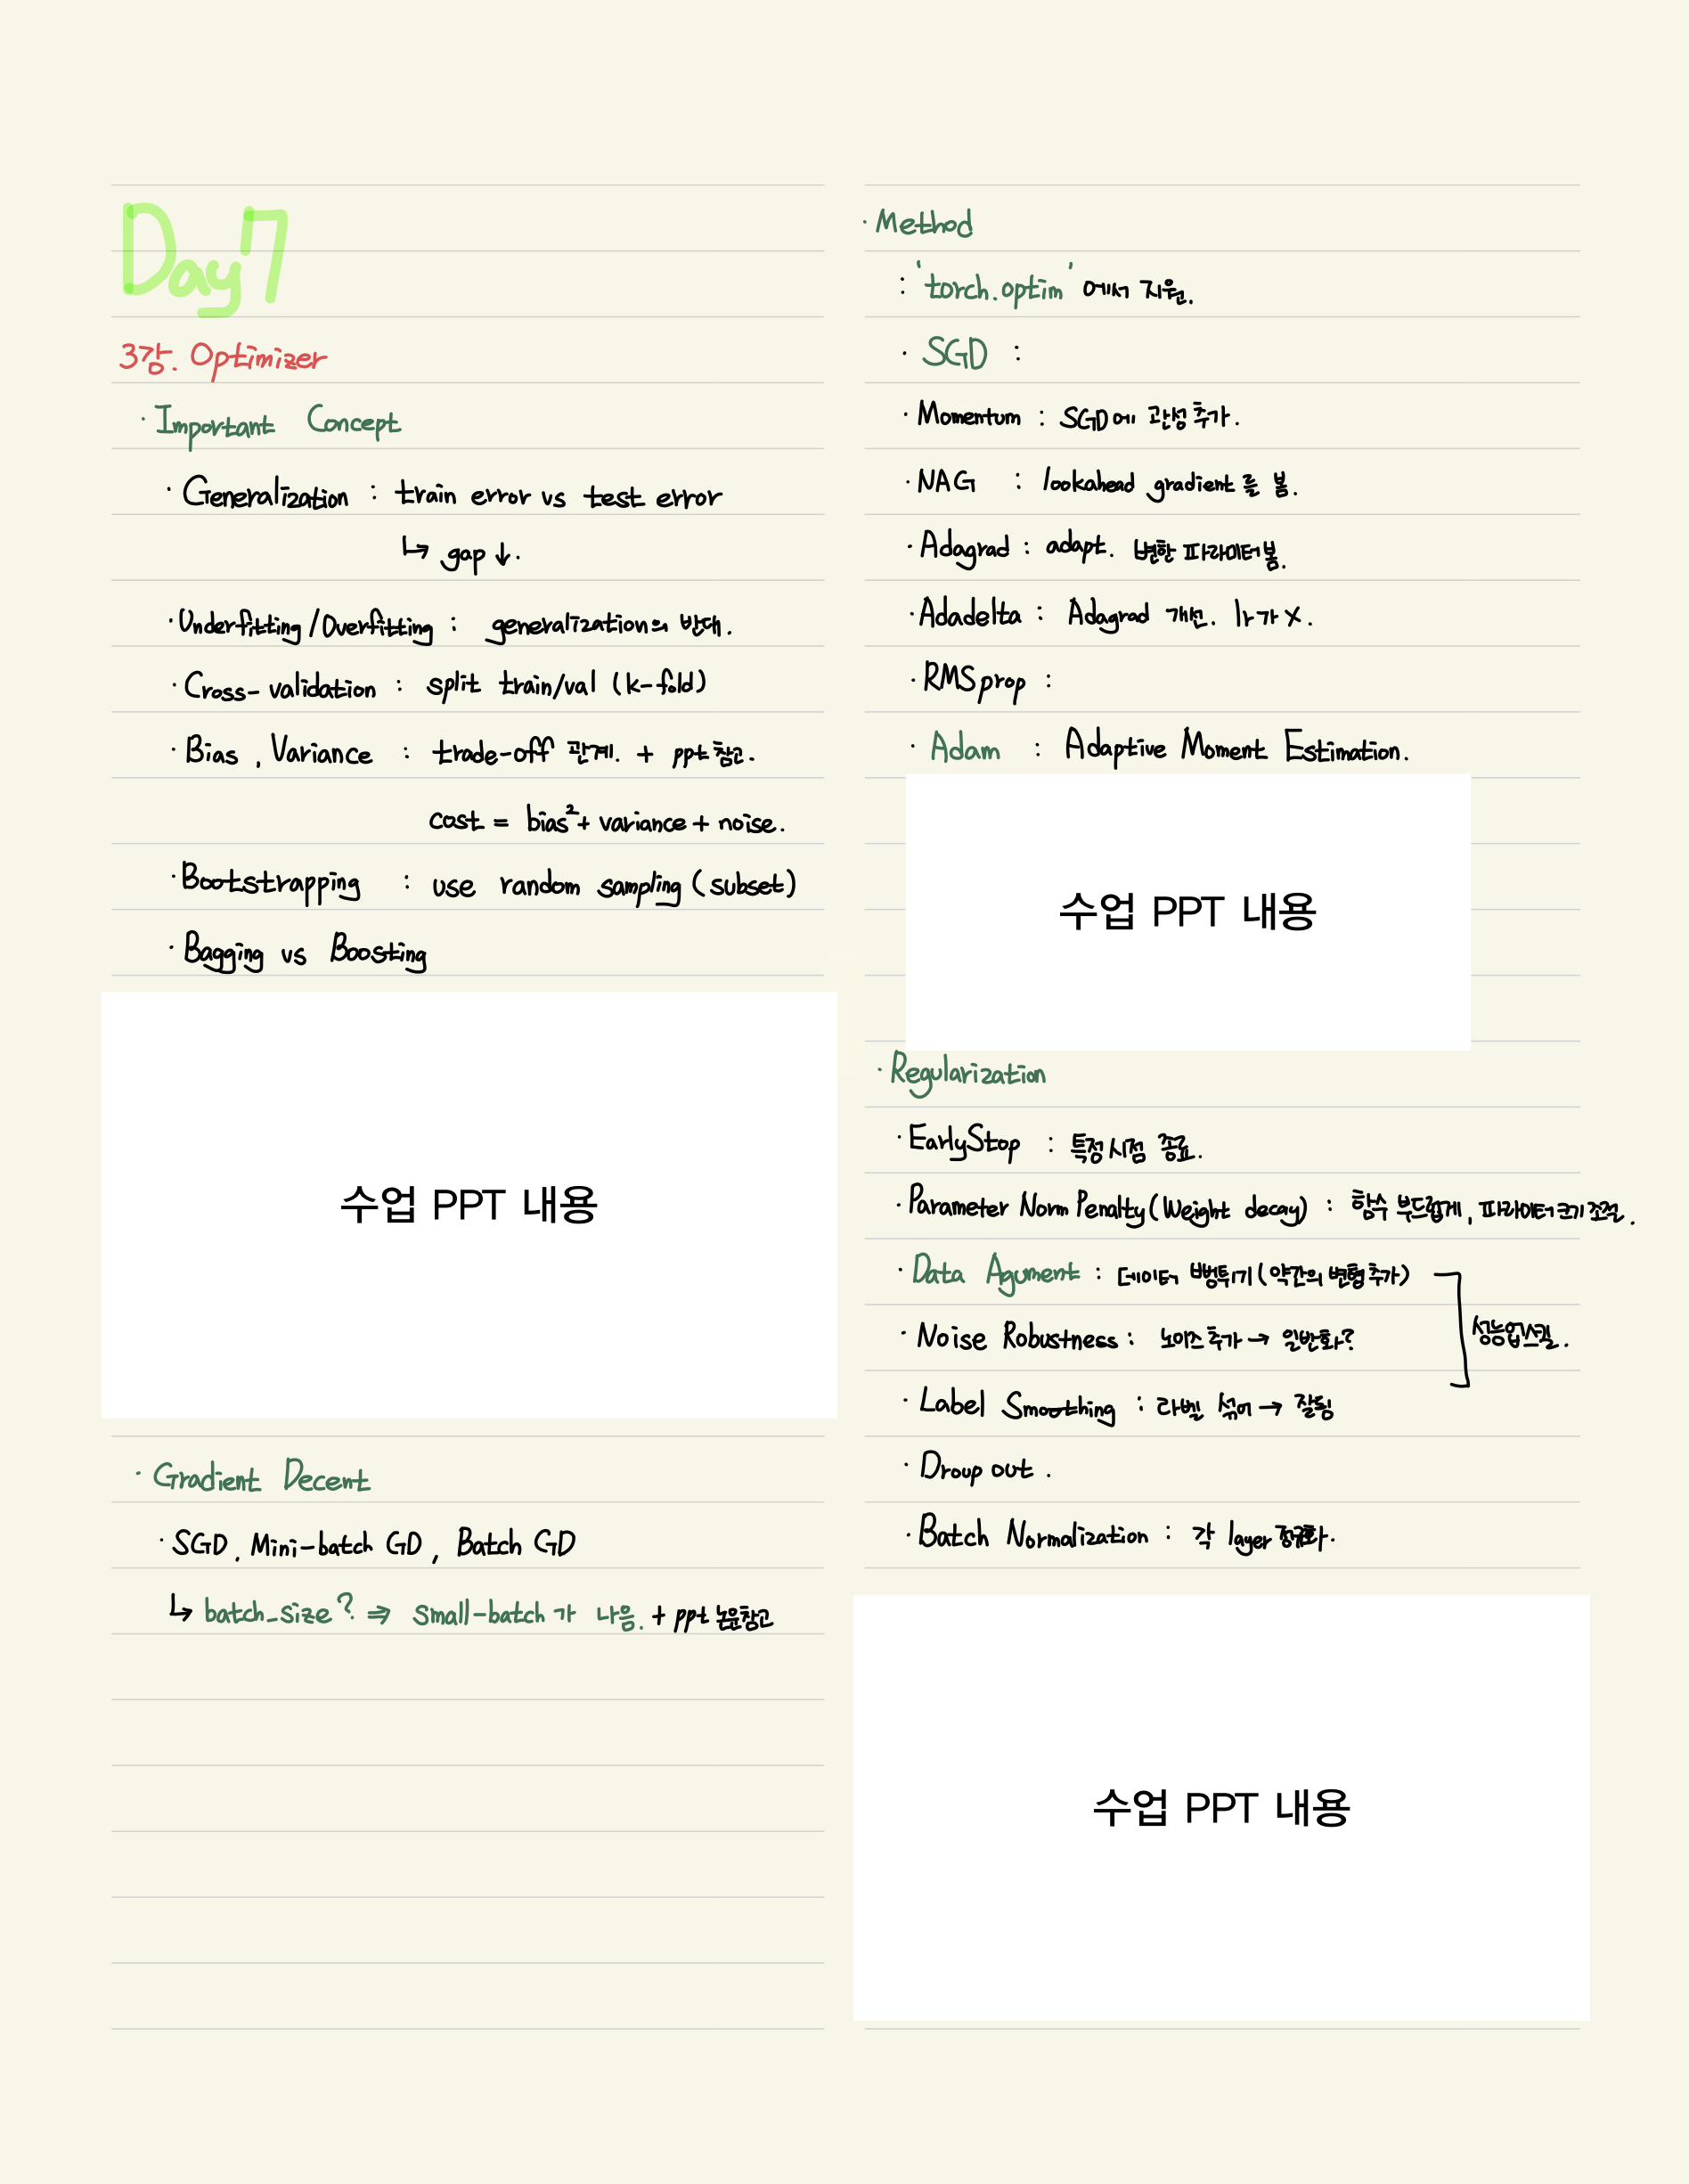 Day 7
3강. Optimizer
· Important Concept
· Generalization : train error vs test error
↳ gap ↓.
· Underfitting / Overfitting : generalization의 반대.
· Cross-validation : split train/val (k-fold)
· Bias, Variance : trade-off 관계. + ppt 참고.
cost = bias² + variance + noise.
· Bootstrapping : use random sampling (subset)
· Bagging vs Boosting
수업 PPT 내용
· Gradient Decent
· SGD, Mini-batch GD, Batch GD
↳ batch_size? ⇒ small-batch가 나음. + ppt 논문참고
· Method
: 'torch.optim' 에서 지원.
· SGD :
· Momentum : SGD에 관성 추가.
· NAG : lookahead gradient를 봄.
· Adagrad : adapt. 변한 파라미터 봄.
· Adadelta : Adagrad 개선. lr가 X.
· RMSprop :
· Adam : Adaptive Moment Estimation.
수업 PPT 내용
· Regularization
· EarlyStop : 특정 시점 종료.
· Parameter Norm Penalty (Weight decay) : 함수 부드럽게, 파라미터 크기 조절.
· Data Agument : 데이터 뻥튀기 (약간의 변형 추가)
· Noise Robustness : 노이즈 추가 → 일반화?
성능업스퀼.
· Label Smoothing : 라벨 섞어 → 잘됨
· Droup out.
· Batch Normalization : 각 layer 정규화.
수업 PPT 내용